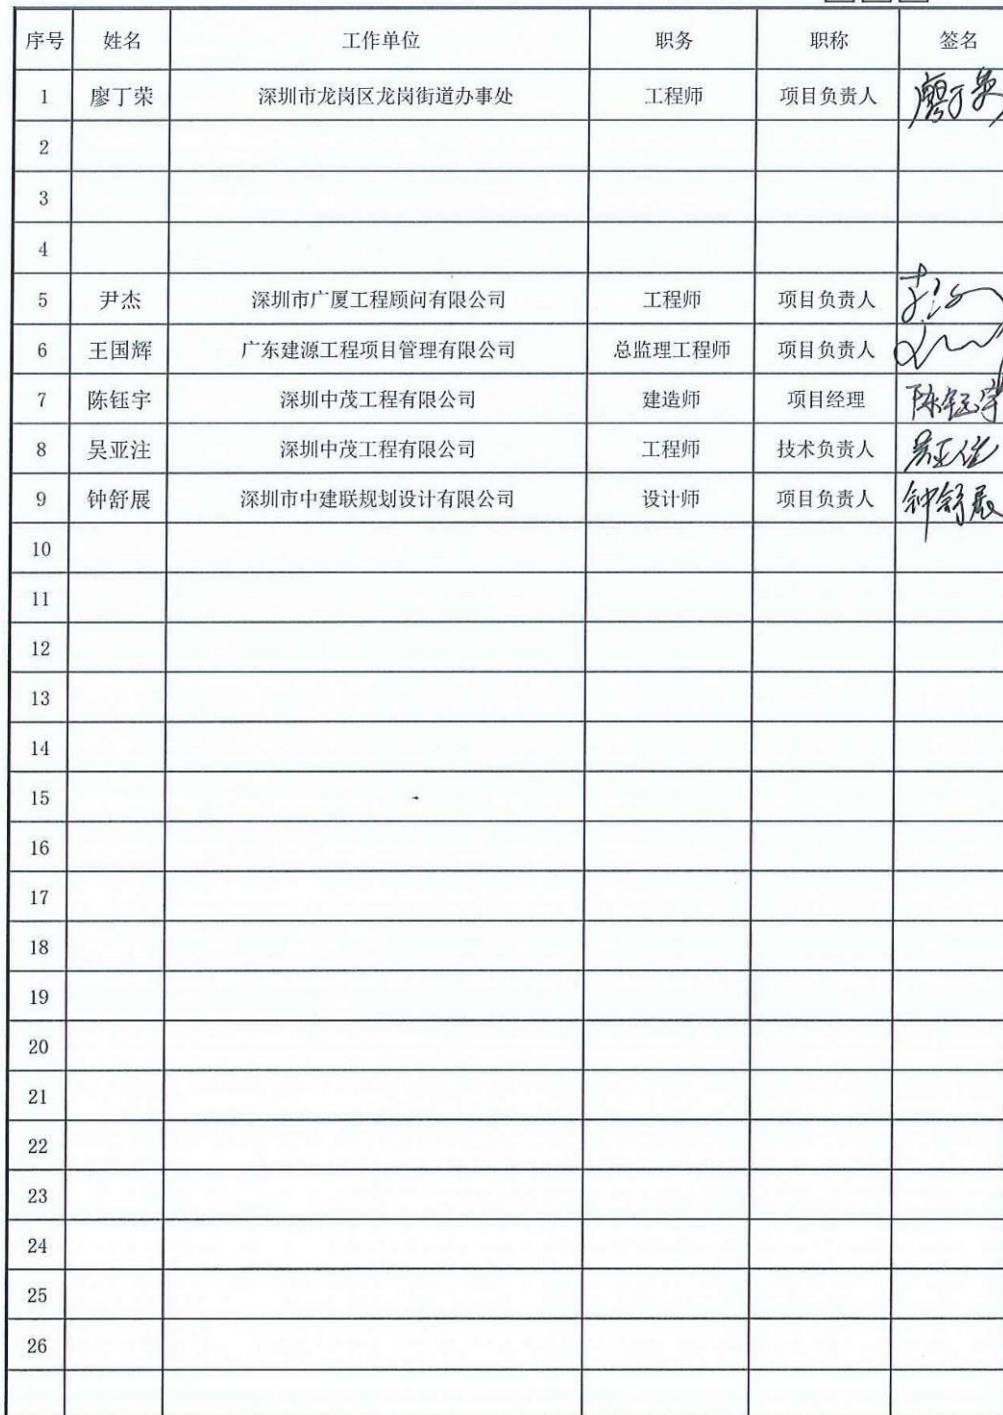 序号 姓名 工作单位 职务 职称 签名
1 廖丁荣 深圳市龙岗区龙岗街道办事处 工程师 项目负责人 廖丁荣
2
3
4
5 尹杰 深圳市广厦工程顾问有限公司 工程师 项目负责人
6 王国辉 广东建源工程项目管理有限公司 总监理工程师 项目负责人
7 陈钰宇 深圳中茂工程有限公司 建造师 项目经理 陈钰宇
8 吴亚注 深圳中茂工程有限公司 工程师 技术负责人
9 钟舒展 深圳市中建联规划设计有限公司 设计师 项目负责人 钟舒展
10
11
12
13
14
15
16
17
18
19
20
21
22
23
24
25
26